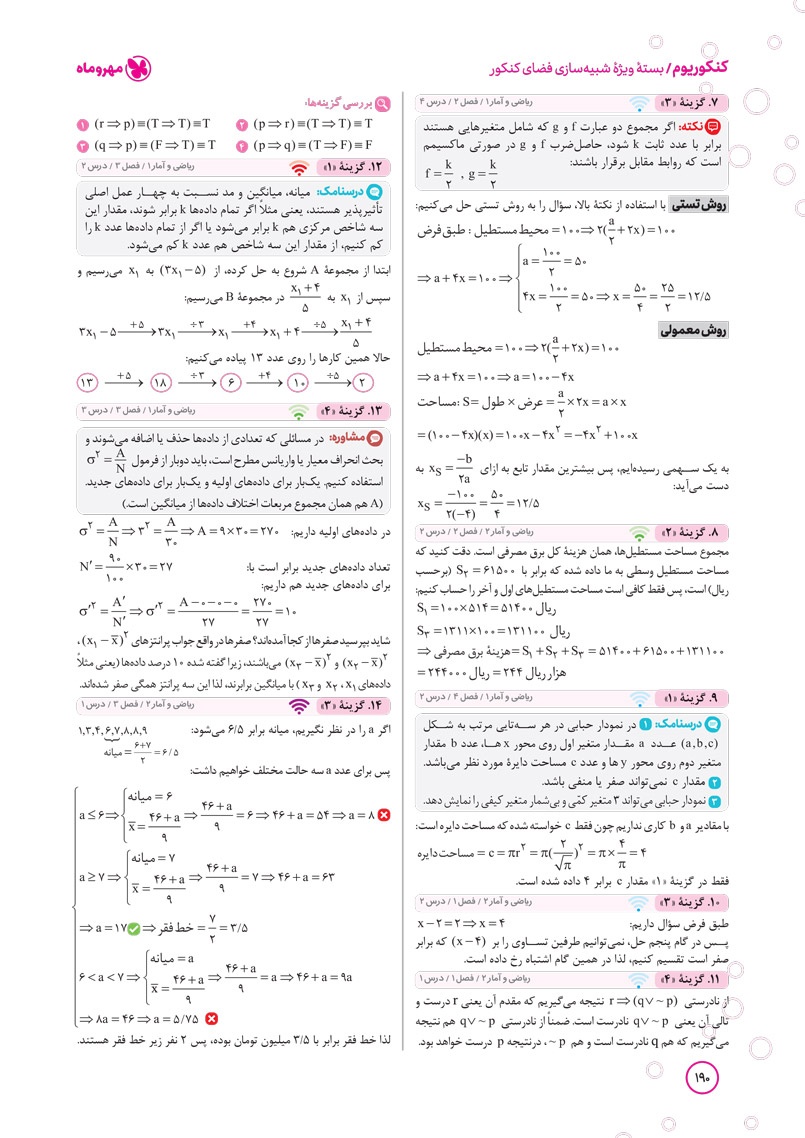 کنکوریوم/ بستهٔ ویژهٔ شبیه‌سازی فضای کنکور
مهروماه
۷. گزینهٔ «۳» ریاضی و آمار۱ / فصل ۲ / درس ۴
نکته: اگر مجموع دو عبارت f و g که شامل متغیرهایی هستند
برابر با عدد ثابت k شود، حاصل‌ضرب f و g در صورتی ماکسیمم
است که روابط مقابل برقرار باشند:
f = k/۲ , g = k/۲
روش تستی با استفاده از نکتهٔ بالا، سؤال را به روش تستی حل می‌کنیم:
طبق فرض : محیط مستطیل = ۱۰۰ ⇒ ۲(a/۲ + ۲x) = ۱۰۰
⇒ a + ۴x = ۱۰۰ ⇒ { a = ۱۰۰/۲ = ۵۰
۴x = ۱۰۰/۲ = ۵۰ ⇒ x = ۵۰/۴ = ۲۵/۲ = ۱۲/۵
روش معمولی
محیط مستطیل = ۱۰۰ ⇒ ۲(a/۲ + ۲x) = ۱۰۰
⇒ a + ۴x = ۱۰۰ ⇒ a = ۱۰۰ − ۴x
مساحت: S = طول × عرض = a/۲ × ۲x = a × x
= (۱۰۰ − ۴x)(x) = ۱۰۰x − ۴x² = −۴x² + ۱۰۰x
به یک سهمی رسیده‌ایم، پس بیشترین مقدار تابع به ازای xS = −b/۲a به
دست می‌آید:
xS = −۱۰۰/۲(−۴) = ۵۰/۴ = ۱۲/۵
۸. گزینهٔ «۲» ریاضی و آمار۲ / فصل ۲ / درس ۲
مجموع مساحت مستطیل‌ها، همان هزینهٔ کل برق مصرفی است. دقت کنید که
مساحت مستطیل وسطی به ما داده شده که برابر با S۲ = ۶۱۵۰۰ (برحسب
ریال) است، پس فقط کافی است مساحت مستطیل‌های اول و آخر را حساب کنیم:
S۱ = ۱۰۰ × ۵۱۴ = ۵۱۴۰۰ ریال
S۳ = ۱۳۱۱ × ۱۰۰ = ۱۳۱۱۰۰ ریال
⇒ هزینهٔ برق مصرفی = S۱ + S۲ + S۳ = ۵۱۴۰۰ + ۶۱۵۰۰ + ۱۳۱۱۰۰
= ۲۴۴۰۰۰ ریال = ۲۴۴ هزار ریال
۹. گزینهٔ «۱» ریاضی و آمار۱ / فصل ۴ / درس ۲
درسنامک: ۱ در نمودار حبابی در هر سه‌تایی مرتب به شکل
(a,b,c) عدد a مقدار متغیر اول روی محور x ها، عدد b مقدار
متغیر دوم روی محور y ها و عدد c مساحت دایرهٔ مورد نظر می‌باشد.
۲ مقدار c نمی‌تواند صفر یا منفی باشد.
۳ نمودار حبابی می‌تواند ۳ متغیر کمّی و بی‌شمار متغیر کیفی را نمایش دهد.
با مقادیر a و b کاری نداریم چون فقط c خواسته شده که مساحت دایره است:
مساحت دایره = c = πr² = π(۲/√π)² = π × ۴/π = ۴
فقط در گزینهٔ «۱» مقدار c برابر ۴ داده شده است.
۱۰. گزینهٔ «۳» ریاضی و آمار۲ / فصل ۱ / درس ۲
طبق فرض سؤال داریم: x − ۲ = ۲ ⇒ x = ۴
پس در گام پنجم حل، نمی‌توانیم طرفین تساوی را بر (x − ۴) که برابر
صفر است تقسیم کنیم، لذا در همین گام اشتباه رخ داده است.
۱۱. گزینهٔ «۴» ریاضی و آمار۲ / فصل ۱ / درس ۱
از نادرستی r ⇒ (q ∨ ~ p) نتیجه می‌گیریم که مقدم آن یعنی r درست و
تالی آن یعنی q ∨ ~ p نادرست است. ضمناً از نادرستی q ∨ ~ p هم نتیجه
می‌گیریم که هم q نادرست است و هم ~ p، درنتیجه p درست خواهد بود.
بررسی گزینه‌ها:
۱ (r ⇒ p) ≡ (T ⇒ T) ≡ T ۲ (p ⇒ r) ≡ (T ⇒ T) ≡ T
۳ (q ⇒ p) ≡ (F ⇒ T) ≡ T ۴ (p ⇒ q) ≡ (T ⇒ F) ≡ F
۱۲. گزینهٔ «۱» ریاضی و آمار۱ / فصل ۳ / درس ۲
درسنامک: میانه، میانگین و مد نسبت به چهار عمل اصلی
تأثیرپذیر هستند، یعنی مثلاً اگر تمام داده‌ها k برابر شوند، مقدار این
سه شاخص مرکزی هم k برابر می‌شود یا اگر از تمام داده‌ها عدد k را
کم کنیم، از مقدار این سه شاخص هم عدد k کم می‌شود.
ابتدا از مجموعهٔ A شروع به حل کرده، از (۳x۱ − ۵) به x۱ می‌رسیم و
سپس از x۱ به x۱ + ۴/۵ در مجموعهٔ B می‌رسیم:
۳x۱ − ۵ —+۵→ ۳x۱ —÷۳→ x۱ —+۴→ x۱ + ۴ —÷۵→ x۱ + ۴/۵
حالا همین کارها را روی عدد ۱۳ پیاده می‌کنیم:
۱۳ —+۵→ ۱۸ —÷۳→ ۶ —+۴→ ۱۰ —÷۵→ ۲
۱۳. گزینهٔ «۴» ریاضی و آمار۱ / فصل ۳ / درس ۳
مشاوره: در مسائلی که تعدادی از داده‌ها حذف یا اضافه می‌شوند و
بحث انحراف معیار یا واریانس مطرح است، باید دوبار از فرمول σ² = A/N
استفاده کنیم. یک‌بار برای داده‌های اولیه و یک‌بار برای داده‌های جدید.
(A هم همان مجموع مربعات اختلاف داده‌ها از میانگین است.)
در داده‌های اولیه داریم: σ² = A/N ⇒ ۳² = A/۳۰ ⇒ A = ۹ × ۳۰ = ۲۷۰
تعداد داده‌های جدید برابر است با: N′ = ۹۰/۱۰۰ × ۳۰ = ۲۷
برای داده‌های جدید هم داریم:
σ′² = A′/N′ ⇒ σ′² = A − ۰ − ۰ − ۰/۲۷ = ۲۷۰/۲۷ = ۱۰
شاید بپرسید صفرها از کجا آمده‌اند؟ صفرها در واقع جواب پرانتزهای (x۱ − x̄)²،
(x۲ − x̄)² و (x۳ − x̄)² می‌باشند، زیرا گفته شده ۱۰ درصد داده‌ها (یعنی مثلاً
داده‌های x۱، x۲ و x۳) با میانگین برابرند، لذا این سه پرانتز همگی صفر شده‌اند.
۱۴. گزینهٔ «۳» ریاضی و آمار۲ / فصل ۳ / درس ۱
اگر a را در نظر نگیریم، میانه برابر ۶/۵ می‌شود: ۱,۳,۴,۶,۷,۸,۸,۹
میانه = ۶+۷/۲ = ۶/۵
پس برای عدد a سه حالت مختلف خواهیم داشت:
a ≤ ۶ ⇒ { میانه = ۶
x̄ = ۴۶ + a/۹ ⇒ ۴۶ + a/۹ = ۶ ⇒ ۴۶ + a = ۵۴ ⇒ a = ۸
a ≥ ۷ ⇒ { میانه = ۷
x̄ = ۴۶ + a/۹ ⇒ ۴۶ + a/۹ = ۷ ⇒ ۴۶ + a = ۶۳
⇒ a = ۱۷ ⇒ خط فقر = ۷/۲ = ۳/۵
۶ < a < ۷ ⇒ { میانه = a
x̄ = ۴۶ + a/۹ ⇒ ۴۶ + a/۹ = a ⇒ ۴۶ + a = ۹a
⇒ ۸a = ۴۶ ⇒ a = ۵/۷۵
لذا خط فقر برابر با ۳/۵ میلیون تومان بوده، پس ۲ نفر زیر خط فقر هستند.
۱۹۰